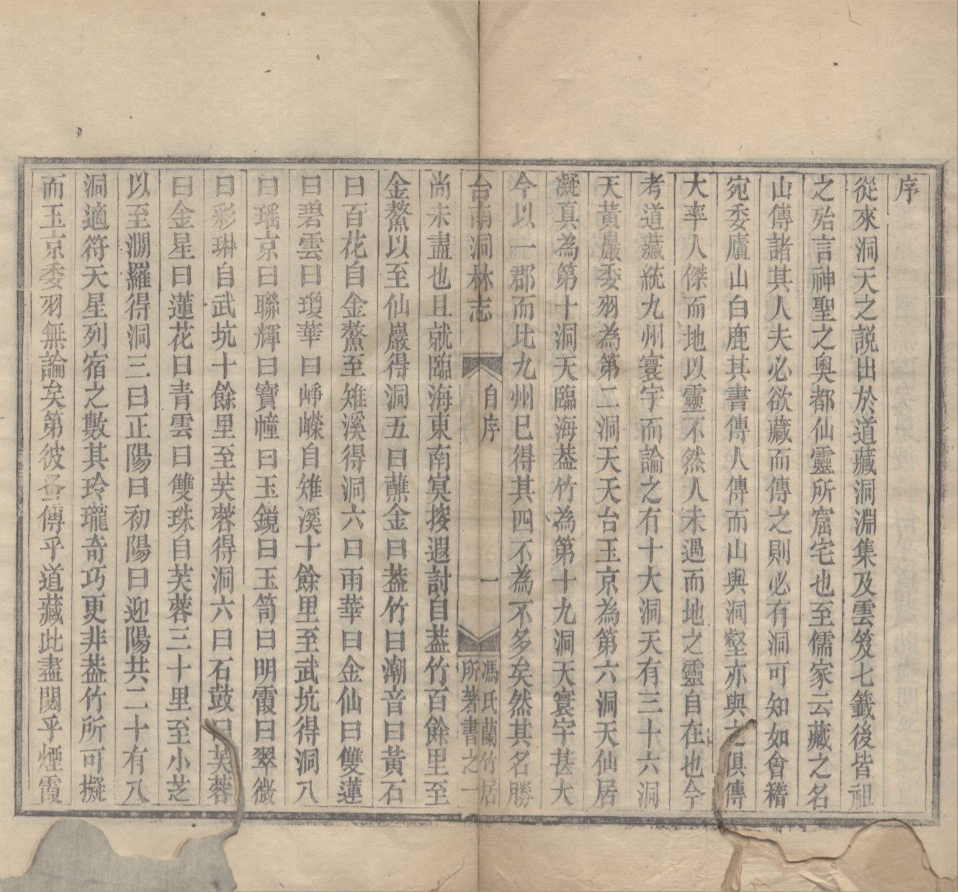 序
從來洞天之説出於道藏洞淵集及雲笈七籤後皆祖
之殆言神聖之奥都仙靈所窟宅也至儒家云藏之名
山傳諸其人夫必欲藏而傳之則必有洞可知如會稽
宛委廬山白鹿其書傳人傳而山與洞壑亦與之俱傳
大率人傑而地以靈不然人未遇而地之靈自在也今
考道藏統九州寰宇而論之有十大洞天有三十六洞
天黃巖委羽為第二洞天天台玉京為第六洞天仙居
凝真為第十洞天臨海葢竹為第十九洞天寰宇甚大
今以一郡而比九州已得其四不為不多矣然其名勝
台南洞林志 自序 一 馮氏蘭竹居所著書之一
尚未盡也且就臨海東南冥搜遐討自葢竹百餘里至
金鰲以至仙巖得洞五曰蘸金曰葢竹曰潮音曰黃石
曰百花自金鰲至雉溪得洞六曰雨華曰金仙曰雙蓮
曰碧雲曰瓊華曰崢嶸自雉溪十餘里至武坑得洞八
曰瑶京曰聯輝曰寶幢曰玉鏡曰玉笥曰明霞曰翠微
曰彩琳自武坑十餘里至芙蓉得洞六曰石鼓曰芙蓉
曰金星曰蓮花曰青雲曰雙珠自芙蓉三十里至小芝
以至澗羅得洞三曰正陽曰初陽曰迎陽共二十有八
洞適符天星列宿之數其玲瓏奇巧更非葢竹所可擬
而玉京委羽無論矣第彼蚤傳乎道藏此盡閟乎煙霞